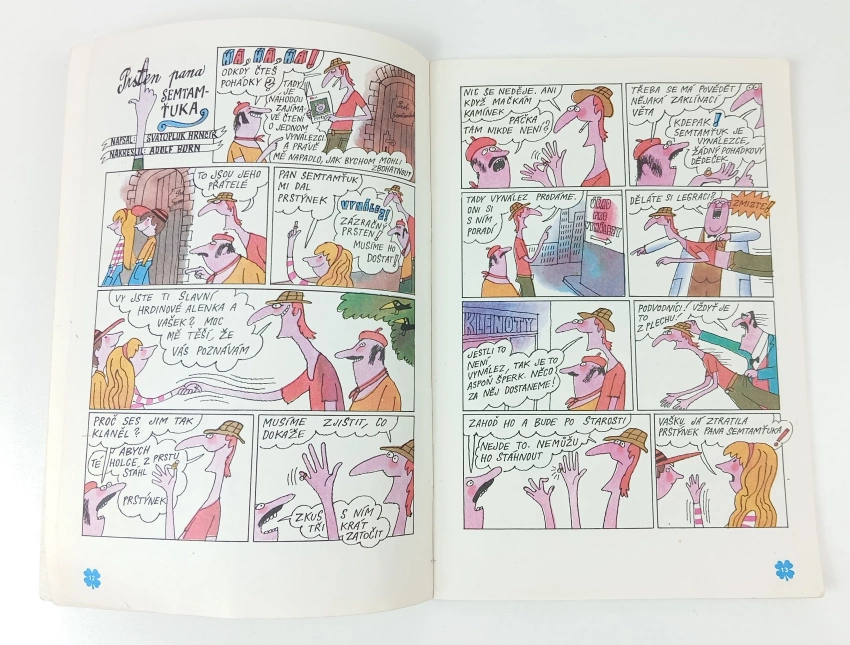 Prsten pana
ŠEMTAM-
ŤUKA
NAPSAL SVATOPLUK HRNČÍŘ
NAKRESLIL ADOLF BORN
HA, HA, HA!
ODKDY ČTEŠ
POHÁDKY?
TADY
JE
NÁHODOU
ZAJÍMA-
VÉ ČTENÍ
O JEDNOM
VYNÁLEZCI
A PRÁVĚ
MĚ NAPADLO, JAK BYCHOM MOHLI
ZBOHATNOUT
TO JSOU JEHO
PŘÁTELÉ
PAN SEMTAMŤUK
MI DAL
PRSTÝNEK
VYNÁLEZ!
ZÁZRAČNÝ
PRSTEN!
MUSÍME HO
DOSTAT!
VY JSTE TI SLAVNÍ
HRDINOVÉ ALENKA A
VAŠEK? MOC
MĚ TĚŠÍ, ŽE
VÁS POZNÁVÁM
PROČ SES JIM TAK
KLANĚL?
ABYCH
TÉ HOLCE Z PRSTU
STÁHL
PRSTÝNEK
MUSÍME ZJISTIT, CO
DOKÁŽE
ZKUS S NÍM
TŘIKRÁT
ZATOČIT
12
NIC SE NEDĚJE. ANI
KDYŽ MAČKÁM
KAMÍNEK
PÁČKA
TAM NIKDE NENÍ?
TŘEBA SE MÁ POVĚDĚT
NĚJAKÁ ZAKLÍNACÍ
VĚTA
KDEPAK!
SEMTAMŤUK JE
VYNÁLEZCE,
ŽÁDNÝ POHÁDKOVÝ
DĚDEČEK
TADY VYNÁLEZ PRODÁME.
ONI SI
S NÍM
PORADÍ
ÚŘAD
PRO
VYNÁLEZY
DĚLÁTE SI LEGRACI?
ZMIZTE!
KLENOTY
JESTLI TO
NENÍ
VYNÁLEZ, TAK JE TO
ASPOŇ ŠPERK. NĚCO
ZA NĚJ DOSTANEME!
PODVODNÍCI! VŽDYŤ JE
TO
Z PLECHU!
ZAHOĎ HO A BUDE PO STAROSTI
NEJDE TO. NEMŮŽU
HO STÁHNOUT
VAŠKU, JÁ ZTRATILA
PRSTÝNEK PANA SEMTAMŤUKA!
13